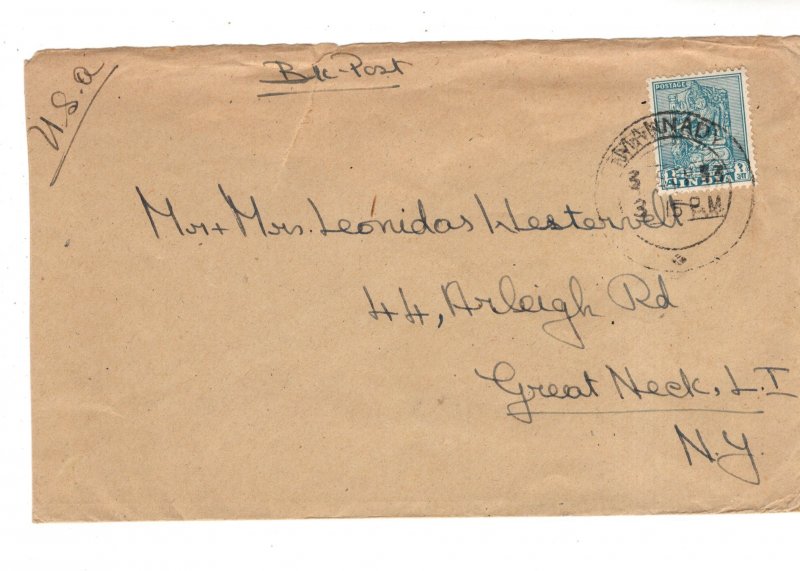 U.S.a
Bk-Post
POSTAGE
INDIA
MANNADY
3 15 P.M
Mr + Mrs. Leonidas Westervelt
44, Arleigh Rd
Great Neck, L.I
N.Y.